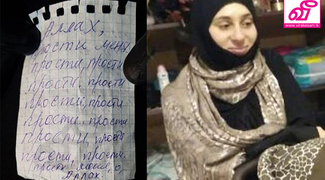 Аллах,
прости меня
прости, прости
прости, прости
прости, прости
прости, прости
прости, прости
прости, прости
прости меня, о
Аллах
வீ
www.virakesari.lk